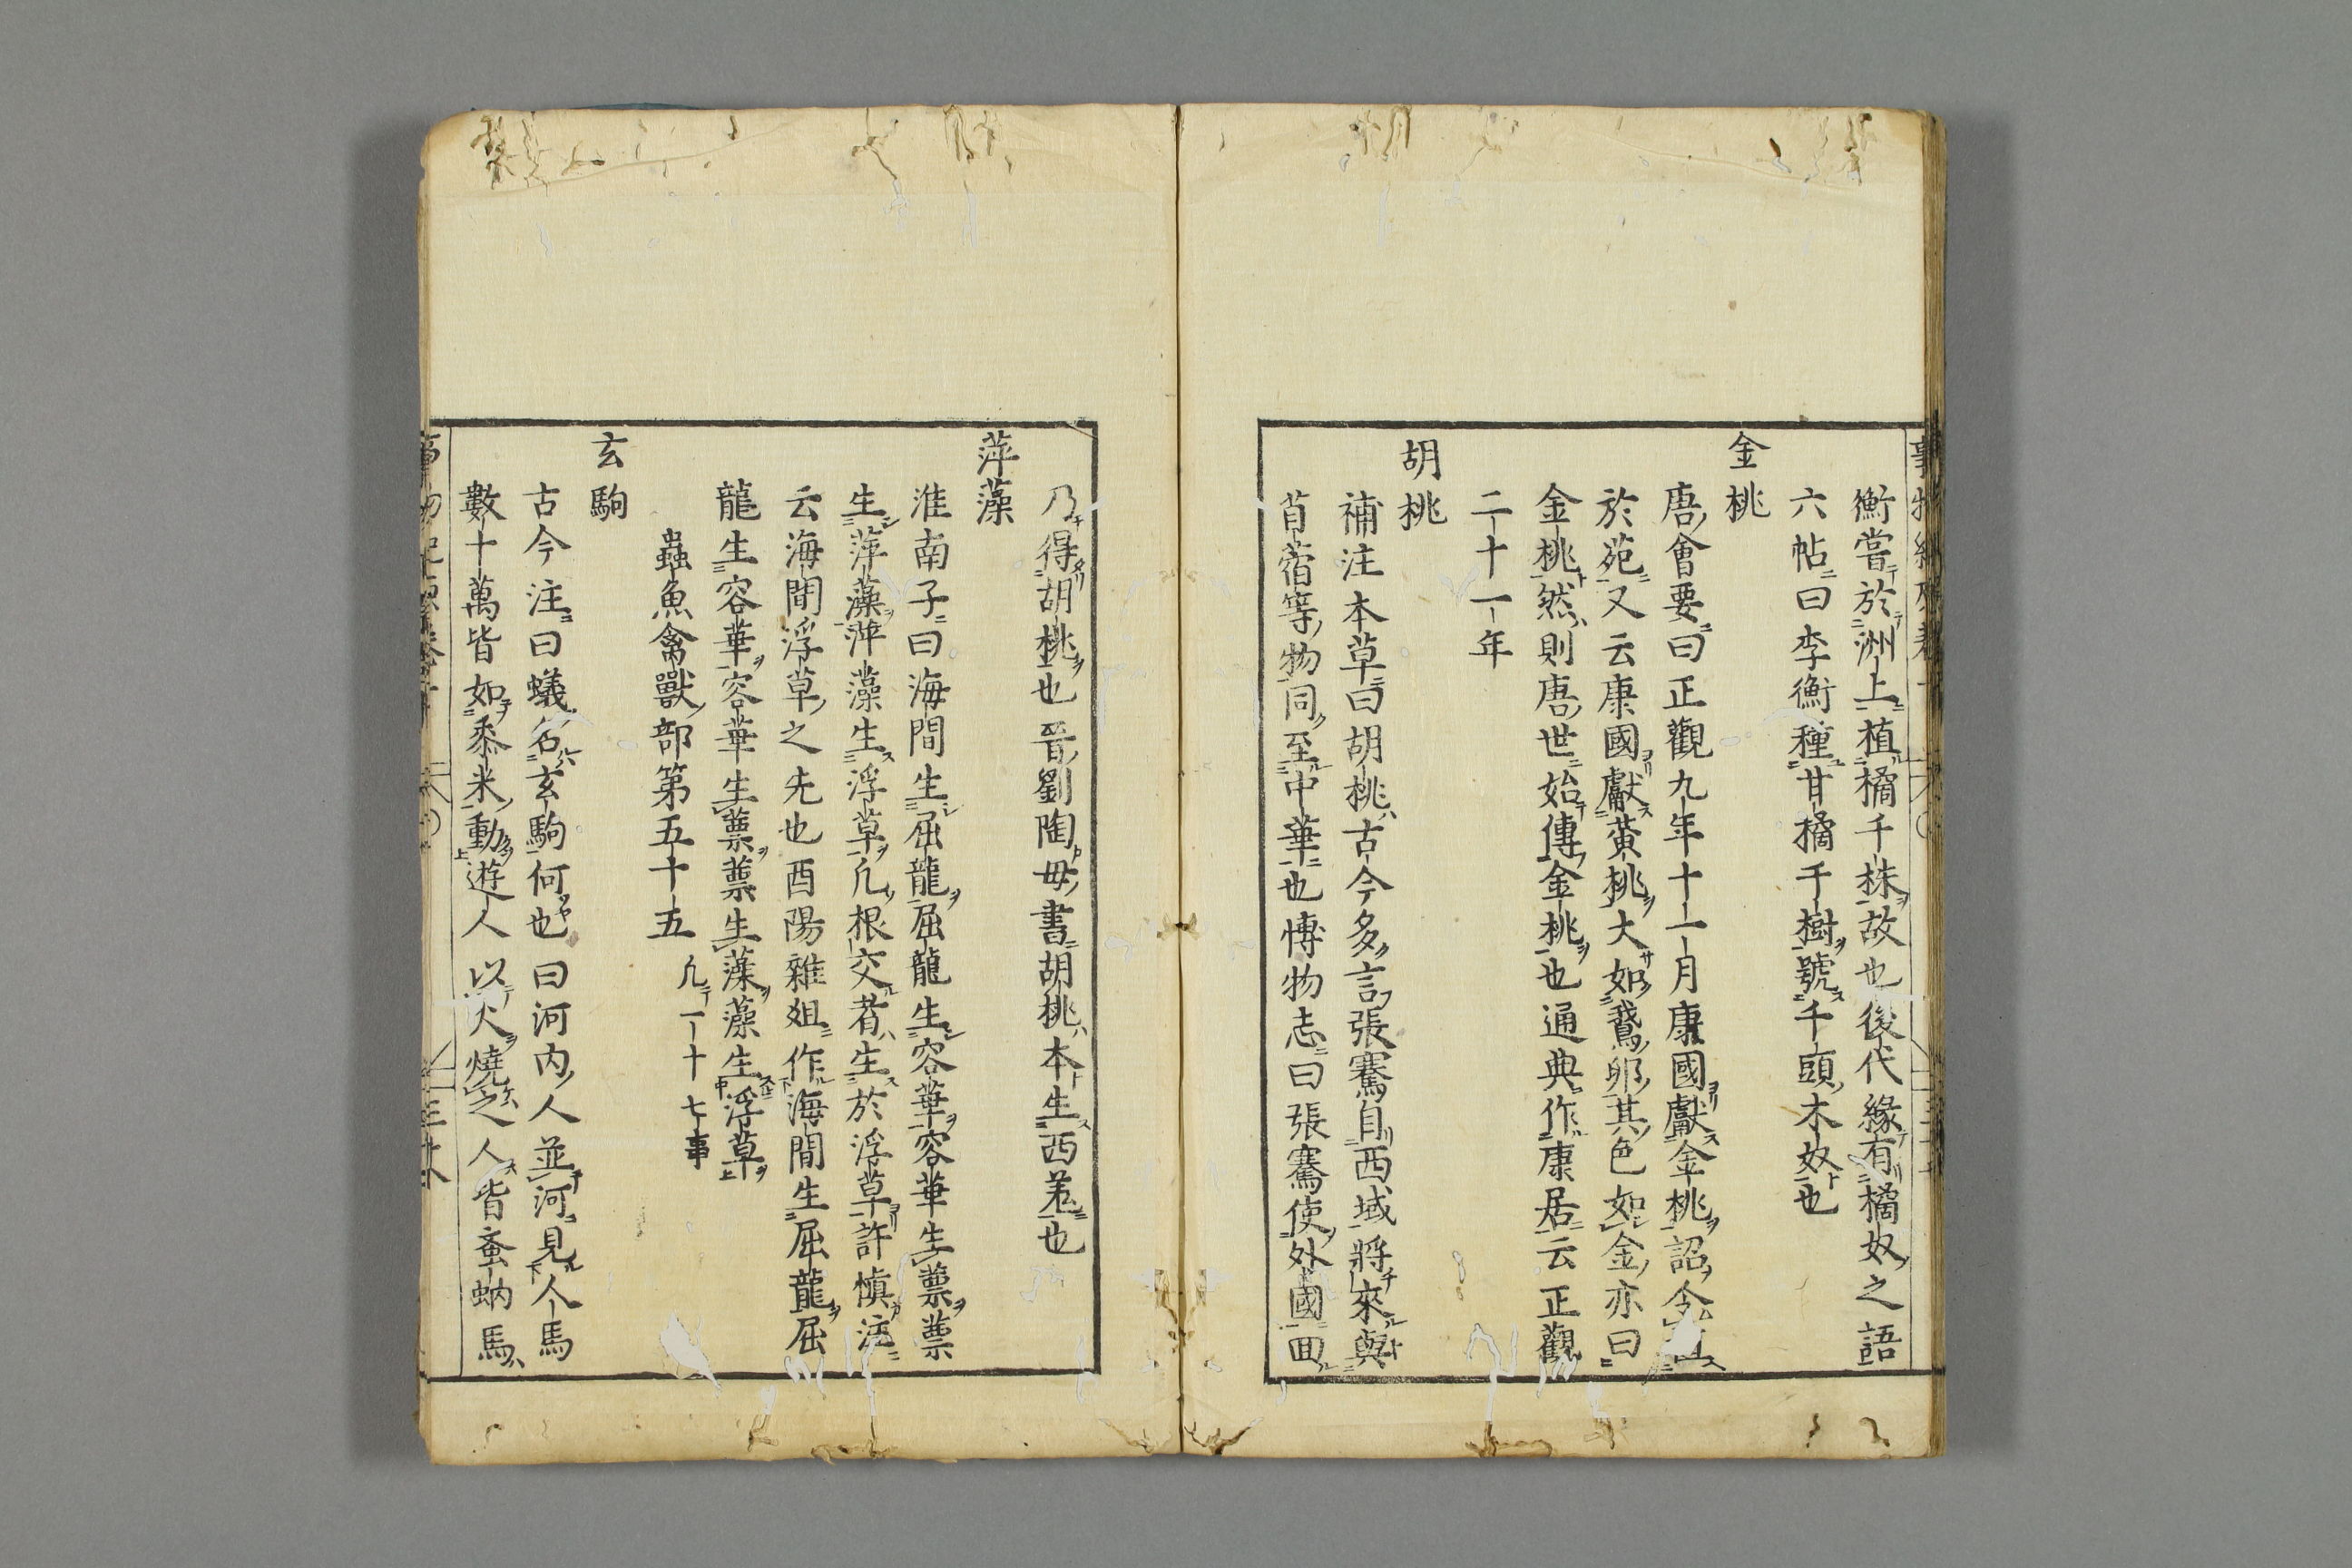 衡嘗於洲上植橘千株故也後代緣有橘奴之語
六帖曰李衡種甘橘千樹號千頭木奴也
金桃
唐會要曰正觀九年十一月康國獻金桃詔令
於苑又云康國獻黃桃大如鵞卵其色如金亦曰
金桃然則唐世始傳金桃也通典作康居云正觀
二十一年
胡桃
補注本草曰胡桃古今多言張騫自西域將來與
苜蓿等物同至中華也博物志曰張騫使外國回
乃得胡桃也晉劉陶母書胡桃本生西羌也
萍藻
淮南子曰海間生屈龍屈龍生容華容華生蔈蔈
生萍藻萍藻生浮草凡根交者生於浮草許愼注
云海間浮草之先也酉陽雜俎作海間生屈龍屈
龍生容華容華生蔈蔈生藻藻生浮草
蟲魚禽獸部第五十五 凡一十七事
玄駒
古今注曰蟻名玄駒何也曰河內人並河見人馬
數十萬皆如黍米動遊人以火燒之人皆蚉蚋馬